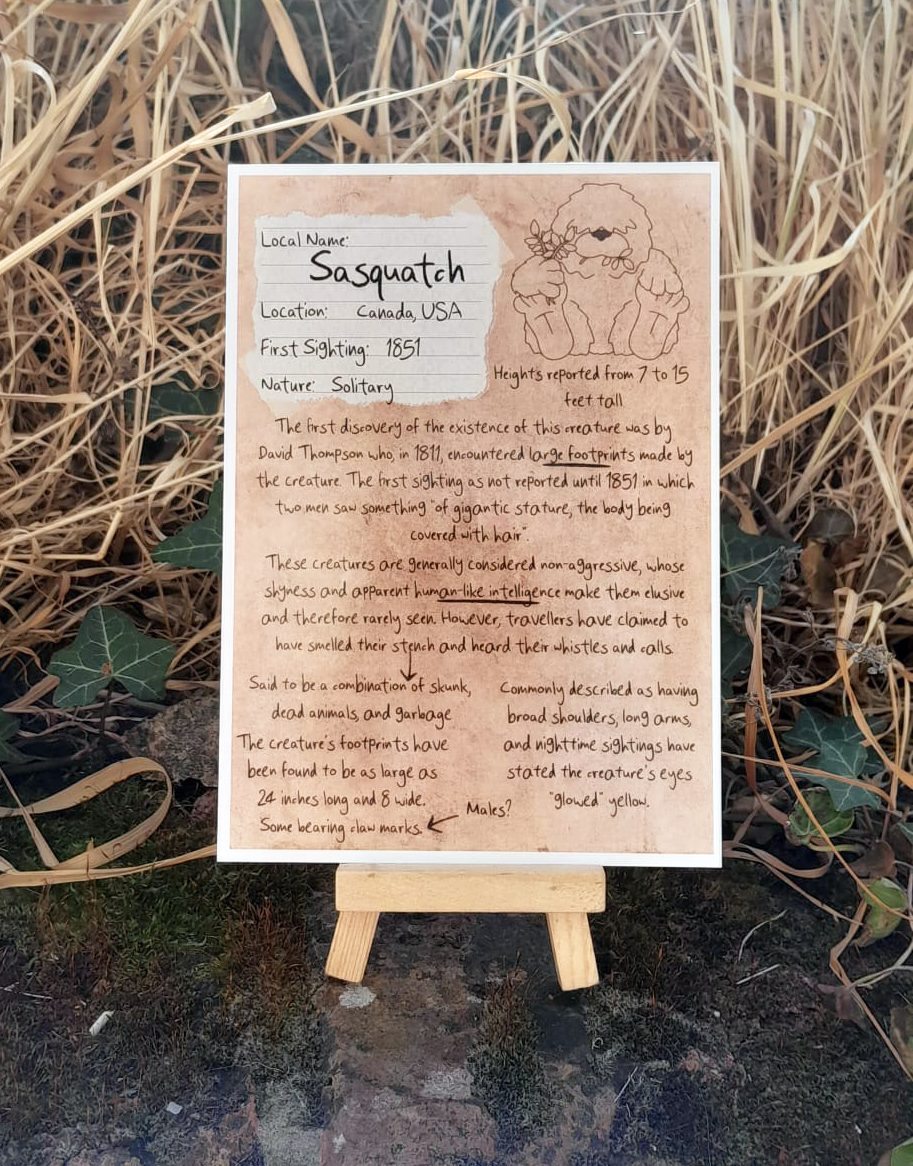 Local Name:
Sasquatch
Location: Canada, USA
First Sighting: 1851
Nature: Solitary
Heights reported from 7 to 15
feet tall
The first discovery of the existence of this creature was by
David Thompson who, in 1811, encountered large footprints made by
the creature. The first sighting as not reported until 1851 in which
two men saw something "of gigantic stature, the body being
covered with hair".
These creatures are generally considered non-aggressive, whose
shyness and apparent human-like intelligence make them elusive
and therefore rarely seen. However, travellers have claimed to
have smelled their stench and heard their whistles and calls.
Said to be a combination of skunk,
dead animals, and garbage
The creature's footprints have
been found to be as large as
24 inches long and 8 wide.
Some bearing claw marks.
Males?
Commonly described as having
broad shoulders, long arms,
and nighttime sightings have
stated the creature's eyes
"glowed" yellow.